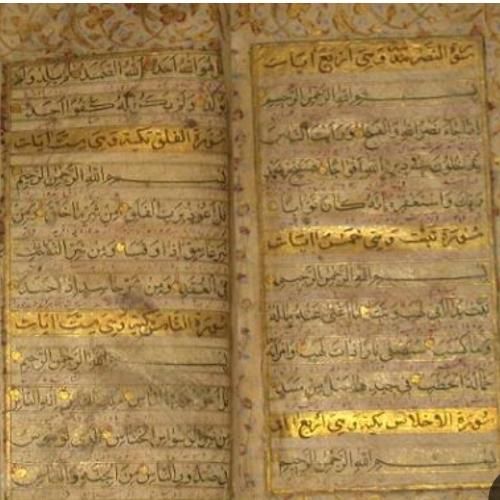 سورة النصر مدنية وهي أربع آيات
بسم الله الرحمن الرحيم
إذا جاء نصر الله والفتح ورأيت الناس
يدخلون في دين الله أفواجا فسبح بحمد
ربك واستغفره إنه كان توابا
سورة تبت وهي خمس آيات
بسم الله الرحمن الرحيم
تبت يدا أبي لهب وتب ما أغنى عنه ماله
وما كسب سيصلى نارا ذات لهب وامرأته
حمالة الحطب في جيدها حبل من مسد
سورة الإخلاص مكية وهي أربع آيات
بسم الله الرحمن الرحيم
قل هو الله أحد الله الصمد لم يلد ولم
يولد ولم يكن له كفوا أحد
سورة الفلق مكية وهي آيات
بسم الله الرحمن الرحيم
قل أعوذ برب الفلق من شر ما خلق ومن
شر غاسق إذا وقب ومن شر النفاثات
في العقد ومن شر حاسد إذا حسد
سورة الناس مكية وهي ست آيات
بسم الله الرحمن الرحيم
قل أعوذ برب الناس ملك الناس إله الناس
من شر الوسواس الخناس الذي يوسوس
في صدور الناس من الجنة والناس